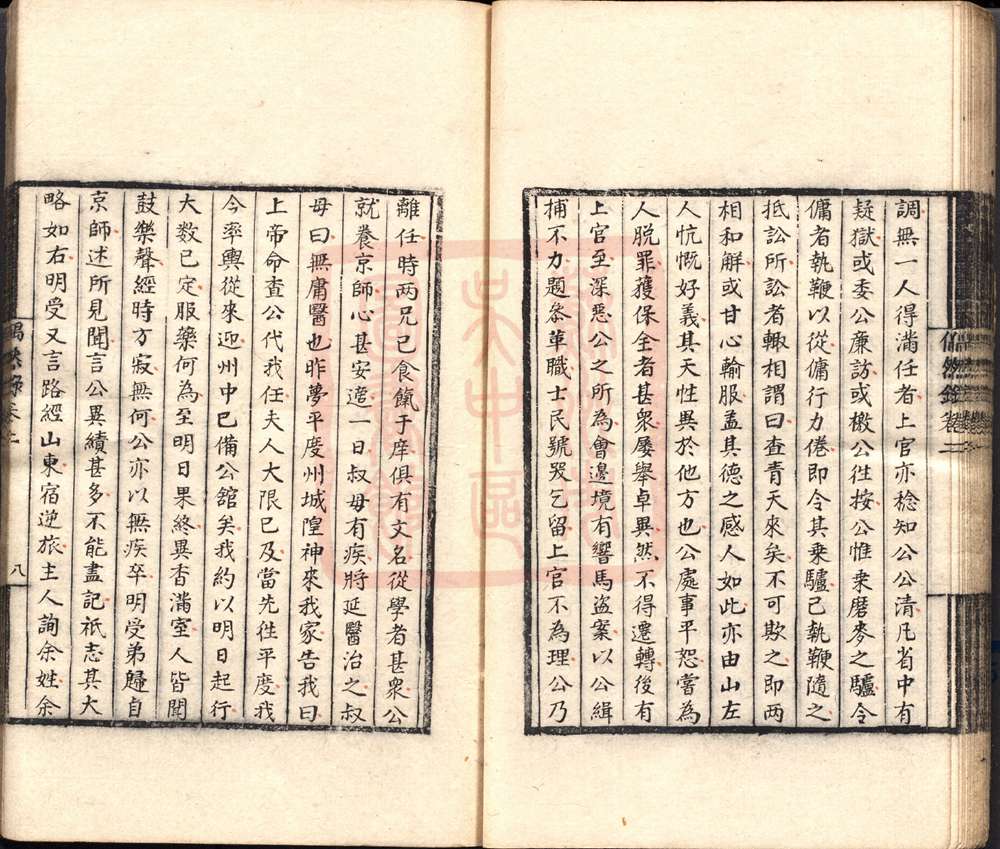 調無一人得滿任者上官亦稔知公公清凡省中有
疑獄或委公廉訪或檄公徃按公惟乗磨麥之驢令
傭者執鞭以從傭行力倦即令其乗驢己執鞭隨之
抵訟所訟者輙相謂曰查青天來矣不可欺之即两
相和解或甘心輸服盖其德之感人如此亦由山左
人忼慨好義其天性異於他方也公處事平恕嘗為
人脱罪獲保全者甚衆屢舉卓異然不得遷轉後有
上官至深悪公之所為會邊境有響馬盗案以公緝
捕不力題叅革職士民號哭乞留上官不為理公乃
離任時两兄已食餼于庠俱有文名從學者甚衆公
就養京師心甚安適一日叔母有疾將延醫治之叔
母曰無庸醫也昨夢平度州城隍神來我家告我曰
上帝命查公代我任夫人大限已及當先徃平度我
今率輿從來迎州中已備公舘矣我約以明日起行
大数已定服藥何為至明日果終異香滿室人皆聞
鼓樂聲經時方寂無何公亦以無疾卒明受弟歸自
京師述所見聞言公異績甚多不能盡記祇志其大
略如右明受又言路經山東宿逆旅主人詢余姓余
八